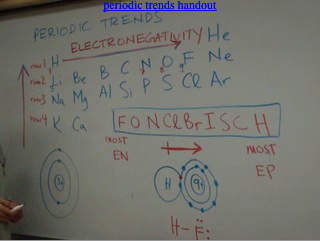 periodic trends handout
PERIODIC TRENDS
ELECTRONEGATIVITY He
row1 H
row2 Li Be B C N O F Ne
row3 Na Mg Al Si P S Cl Ar
row4 K Ca
F O N Cl Br I S C H
MOST EN MOST EP
H
H-F: